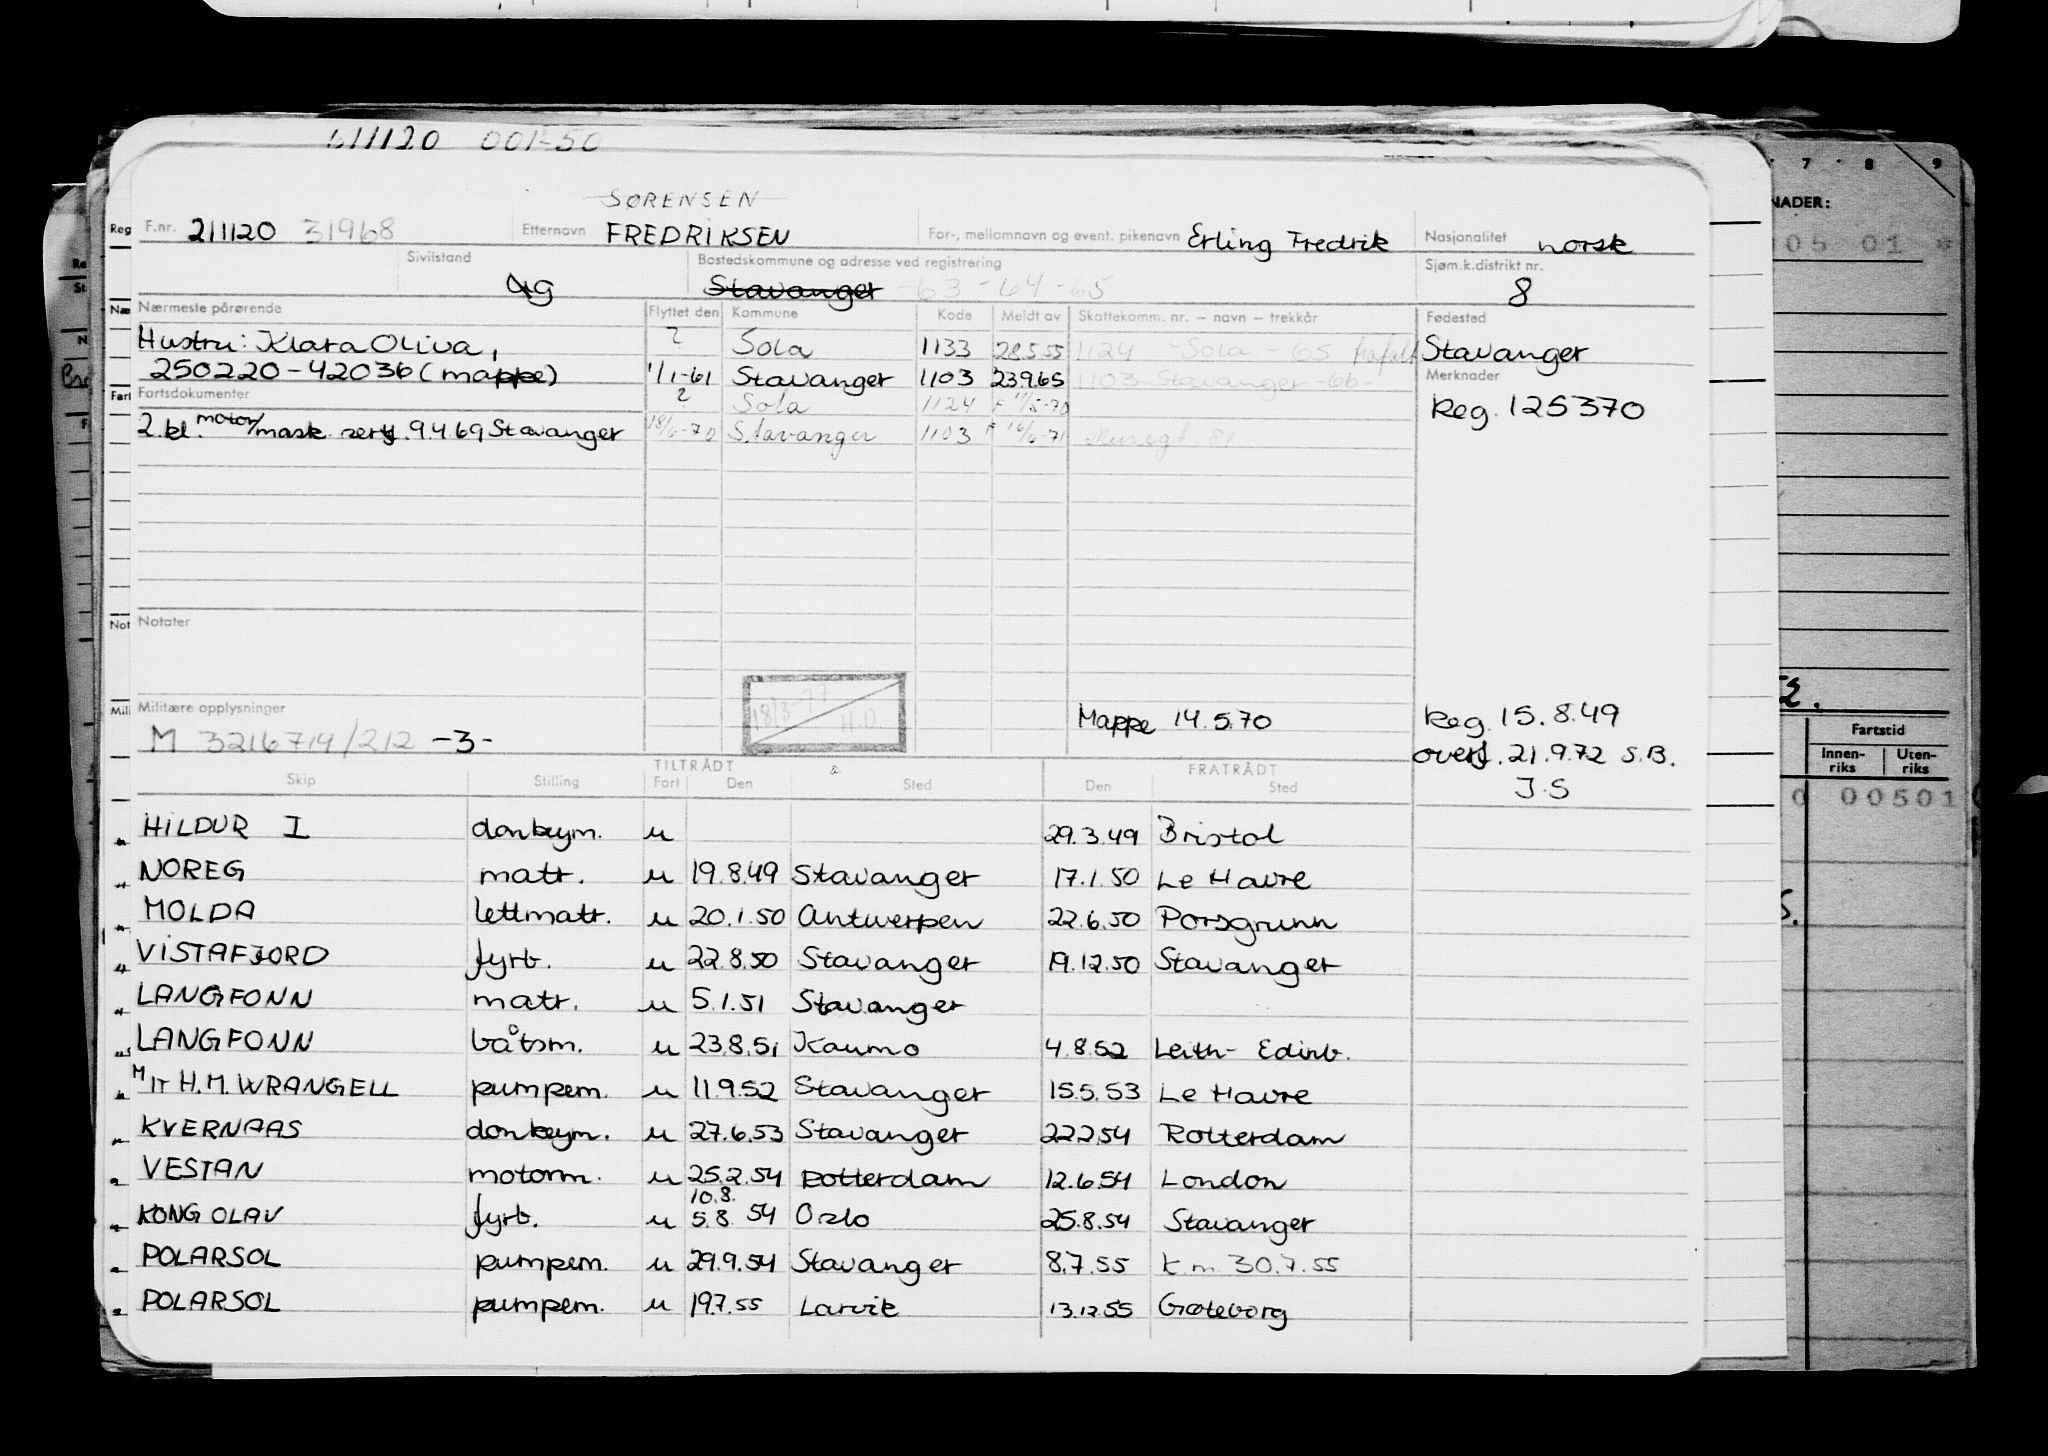 611120 001-50
SØRENSEN
F.nr. 211120 31968 Etternavn FREDRIKSEN For-, mellomnavn og event. pikenavn Erling Fredrik Nasjonalitet norsk
Sivilstand g Bostedskommune og adresse ved registrering Stavanger -63-64-65 Sjøm.k.distrikt nr. 8
Nærmeste pårørende Flyttet den Kommune Kode Meldt av Skattekomm. nr. – navn – trekkår Fødested
Hustru: Klara Oliva, ? Sola 1133 28.5.55 1124 - Sola - 65 Stavanger
250220-42036 (mappe) 1/1-61 Stavanger 1103 23.9.65 1103 Stavanger -66- Merknader
Fartsdokumenter ? Sola 1124 F 11/5-70 Reg. 125370
2.kl. motor/mask. sert. 9.4.69 Stavanger 18/6-70 Stavanger 1103 F 16/6-71
Notater
18/3-77 H.O
Militære opplysninger Mappe 14.5.70 Reg. 15.8.49
M 3216714/212 -3- overf. 21.9.72 S.B.
J.S
TILTRÅDT FRATRÅDT
Skip Stilling Fart Den Sted Den Sted
HILDUR I donkeym. u 29.3.49 Bristol
NOREG matr. u 19.8.49 Stavanger 17.1.50 Le Havre
MOLDA lettmatr. u 20.1.50 Antwerpen 22.6.50 Porsgrunn
VISTAFJORD fyrb. u 22.8.50 Stavanger 19.12.50 Stavanger
LANGFONN matr. u 5.1.51 Stavanger
LANGFONN båtsm. u 23.8.51 Raumo 4.8.52 Leith- Edinb.
M/T H.M. WRANGELL pumpem. u 11.9.52 Stavanger 15.5.53 Le Havre
KVERNAAS donkeym. u 27.6.53 Stavanger 22.2.54 Rotterdam
VESTAN motorm. u 25.2.54 Rotterdam 12.6.54 London
10.8.
KONG OLAV fyrb. u 5.8.54 Oslo 25.8.54 Stavanger
POLARSOL pumpem. u 29.9.54 Stavanger 8.7.55 K.m. 30.7.55
POLARSOL pumpem. u 19.7.55 Larvik 13.12.55 Gøteborg
7 8 9
NADER:
05 01 *
Fartstid
Innen-riks Uten-riks
0 00501